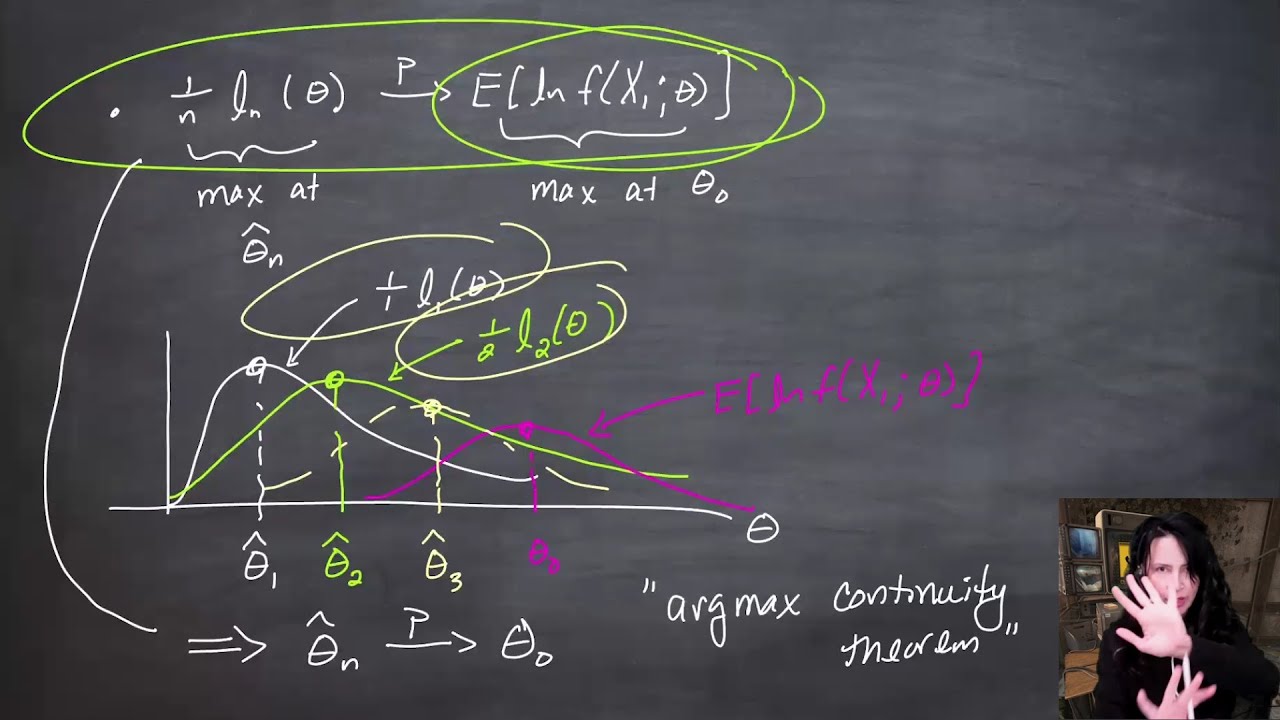 · 1/n lₙ(θ) P→ E[ln f(X₁;θ)]
max at max at θ₀
θ̂ₙ
1/1 l₁(θ)
1/2 l₂(θ)
E[ln f(X₁;θ)]
θ
θ̂₁ θ̂₂ θ̂₃ θ₀
"argmax continuity
theorem"
⇒ θ̂ₙ P→ θ₀